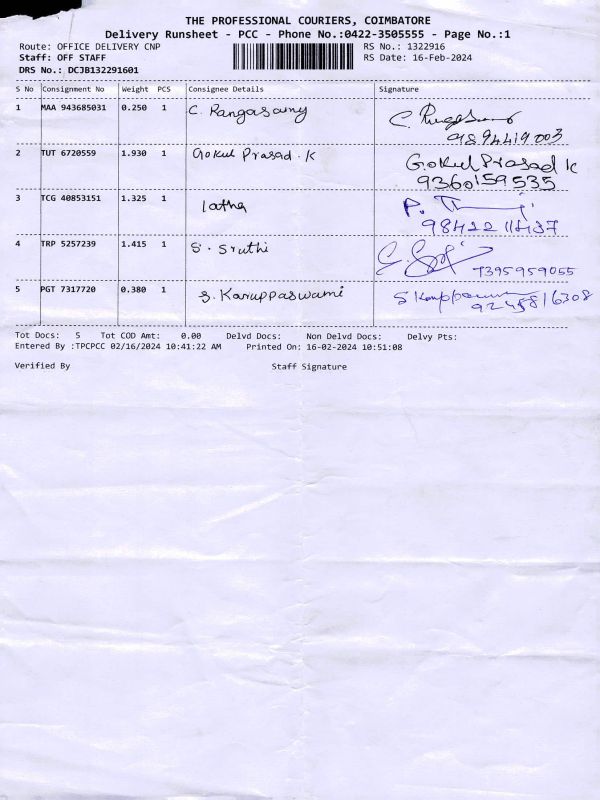 THE PROFESSIONAL COURIERS, COIMBATORE
Delivery Runsheet - PCC - Phone No.:0422-3505555 - Page No.:1
Route: OFFICE DELIVERY CNP RS No.: 1322916
Staff: OFF STAFF RS Date: 16-Feb-2024
DRS No.: DCJB132291601
S No Consignment No Weight PCS Consignee Details Signature
1 MAA 943685031 0.250 1 C. Rangasamy
9894419003
2 TUT 6720559 1.930 1 Gokul Prasad . K Gokul Prasad K
9360159535
3 TCG 40853151 1.325 1 latha P.
98422 11437
4 TRP 5257239 1.415 1 S. Sruthi
7395959055
5 PGT 7317720 0.380 1 S. Karuppaswami
9245816308
Tot Docs: 5 Tot COD Amt: 0.00 Delvd Docs: Non Delvd Docs: Delvy Pts:
Entered By :TPCPCC 02/16/2024 10:41:22 AM Printed On: 16-02-2024 10:51:08
Verified By Staff Signature